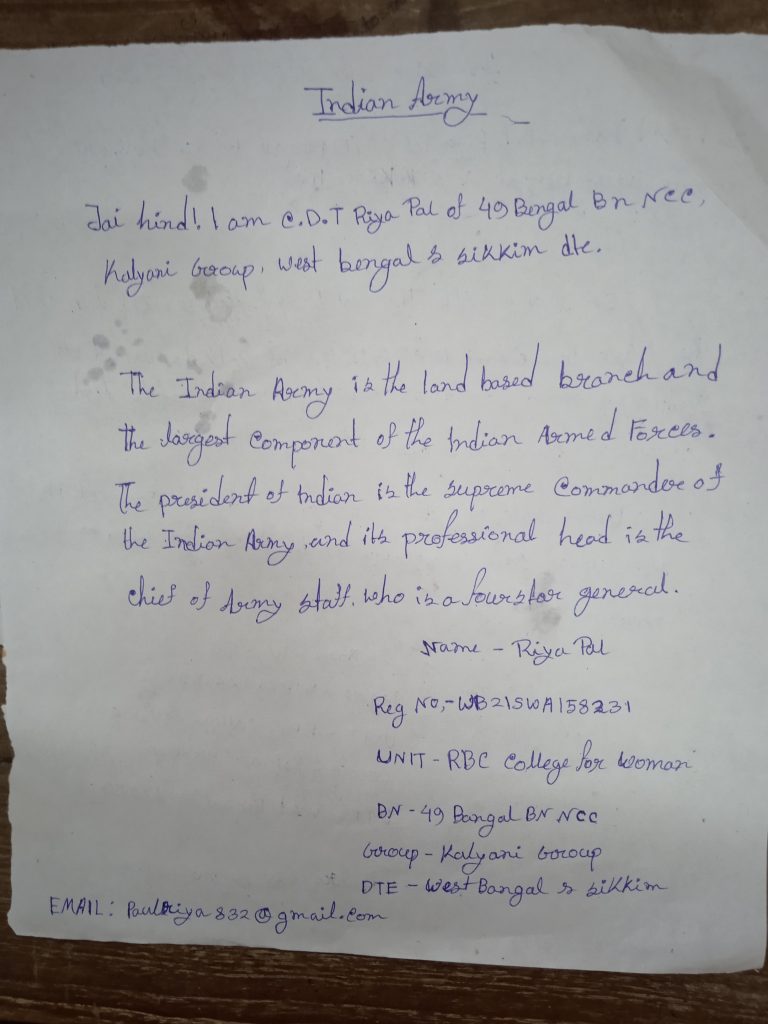 Indian Army
Jai hind! I am C.D.T Riya Pal of 49 Bengal Bn NCC,
Kalyani Group, West bengal & sikkim dte.
The Indian Army is the land based branch and
the largest Component of the Indian Armed Forces.
The president of Indian is the supreme Commander of
the Indian Army, and its professional head is the
chief of Army staff, who is a four star general.
Name - Riya Pal
Reg NO,- WB21SWA158231
UNIT - RBC College for woman
BN - 49 Bangal BN NCC
Group - Kalyani Group
DTE - West Bangal & sikkim
EMAIL: Paulriya832@gmail.com